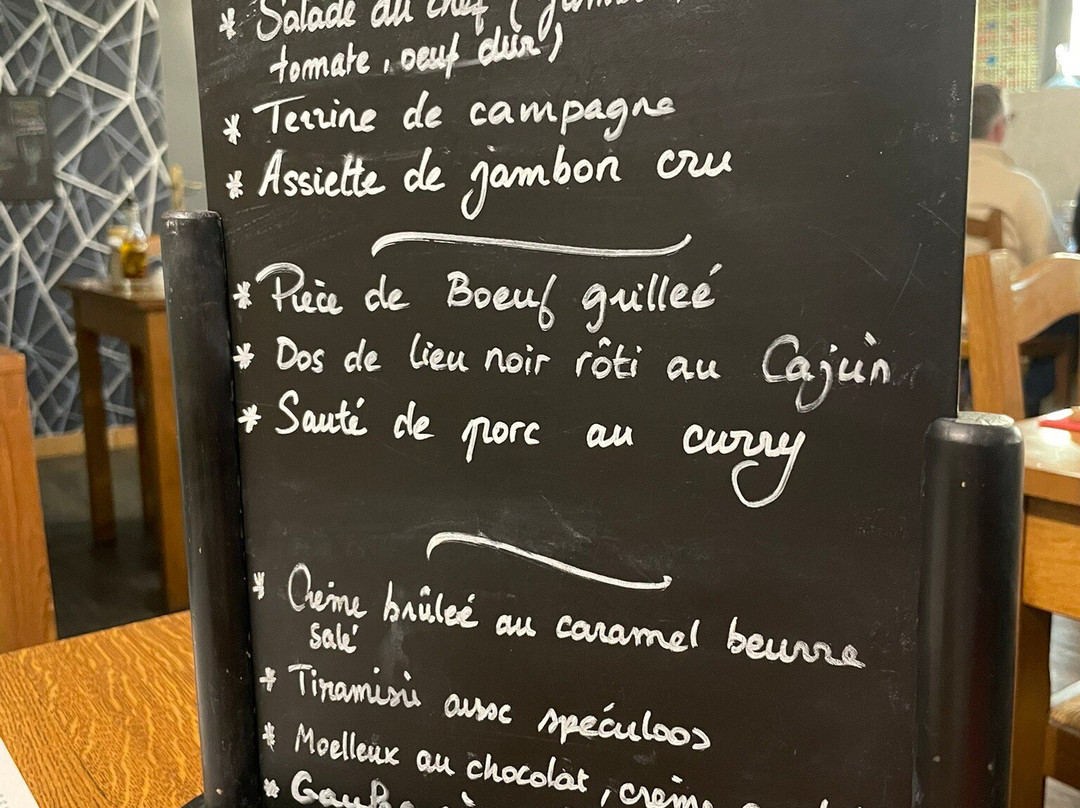 * Salade du chef (
tomate, oeuf dur)
* Terrine de campagne
* Assiette de jambon cru
* Pièce de Boeuf grilleé
* Dos de lieu noir rôti au Cajun
* Sauté de porc au curry
* Crème brûleé au caramel beurre
salé
* Tiramisu aux spéculoos
* Moelleux au chocolat, crème